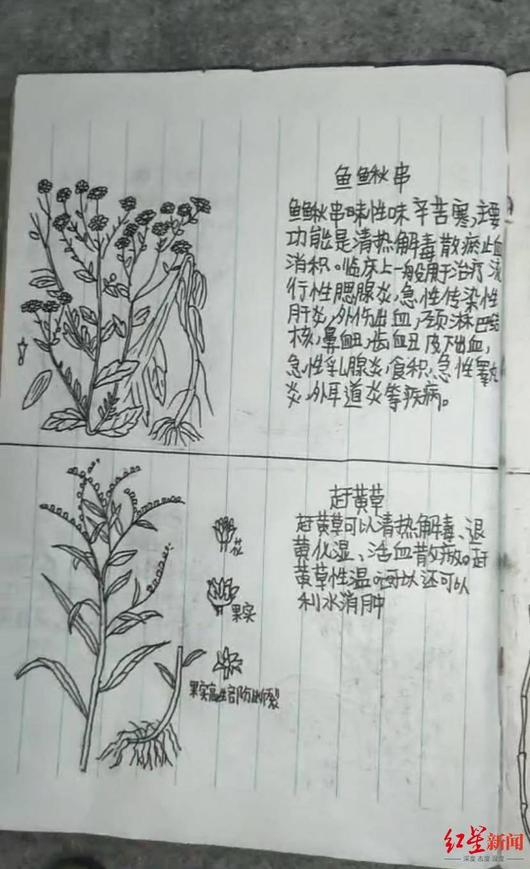 鱼鱼鳅串
鱼鳅串味性味辛苦寒,主要
功能是清热解毒散瘀止血
消积。临床上一般用于治疗流
行性腮腺炎,急性传染性
肝炎,外伤出血,颈淋巴结
核,鼻衄,齿衄皮下出血,
急性乳腺炎,食积,急性睾丸
炎,外耳道炎等疾病。
赶黄草
赶黄草可以清热解毒、退
黄化湿、活血散瘀。赶
黄草性温。可以还可以
利水消肿
花
果实
果实
红星新闻
深度 态度 温度